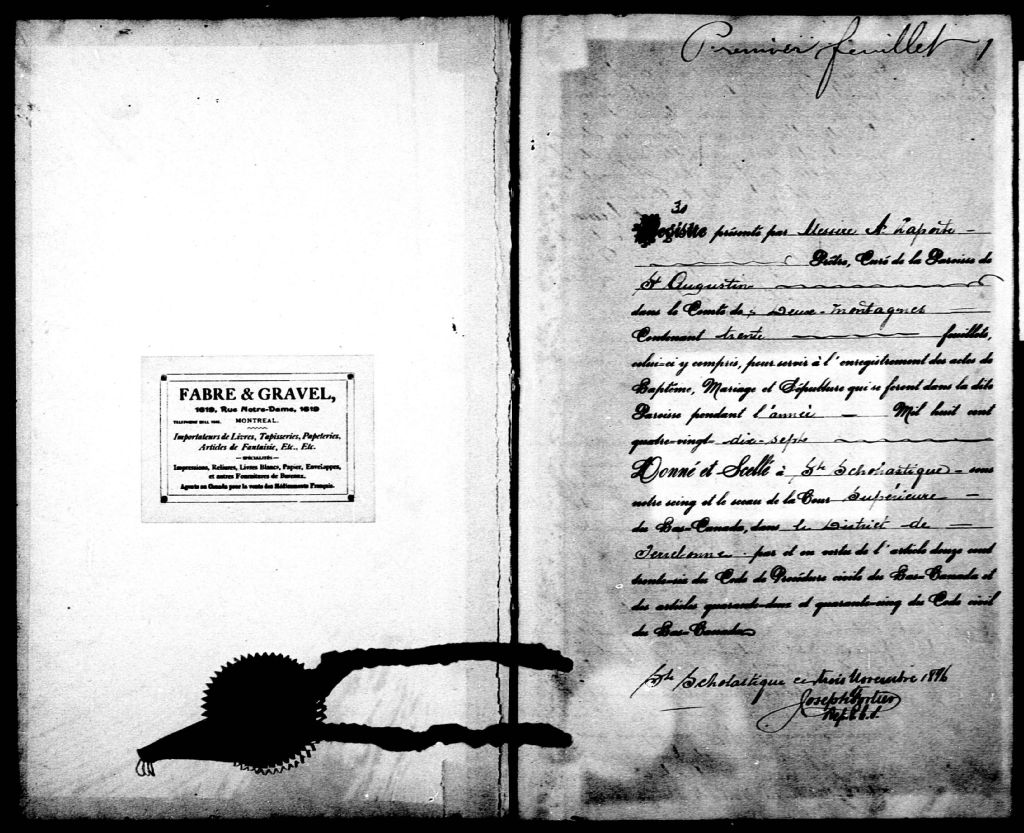 FABRE & GRAVEL,
1619, Rue Notre-Dame, 1619
MONTREAL.
Importateurs de Livres, Tapisseries, Papeteries,
Articles de Fantaisie, Etc., Etc.
— SPÉCIALITÉS —
Impressions, Reliures, Livres Blancs, Papier, Enveloppes,
et autres Fournitures de Bureaux.
Agents au Canada pour la vente des Médicaments Français.
Premier feuillet 1
30
Registre présenté par Messire A. Laporte
Prêtre, Curé de la Paroisse de
St Augustin
dans le Comté de Deux-Montagnes
Contenant trente feuillets,
celui-ci y compris, pour servir à l'enregistrement des actes de
Baptême, Mariage et Sépulture qui se feront dans la dite
Paroisse pendant l'année Mil huit cent
quatre-vingt dix-sept
Donné et Scellé à Ste Scholastique sous
notre seing et le sceau de la Cour Supérieure
du Bas-Canada, dans le District de
Terrebonne par et en vertu de l'article douze cent
trente-six du Code de Procédure civile du Bas-Canada et
des articles quarante-deux et quarante-cinq du Code civil
du Bas-Canada
Ste Scholastique ce trois Novembre 1896
Joseph Fortier
Dép. P.C.S.